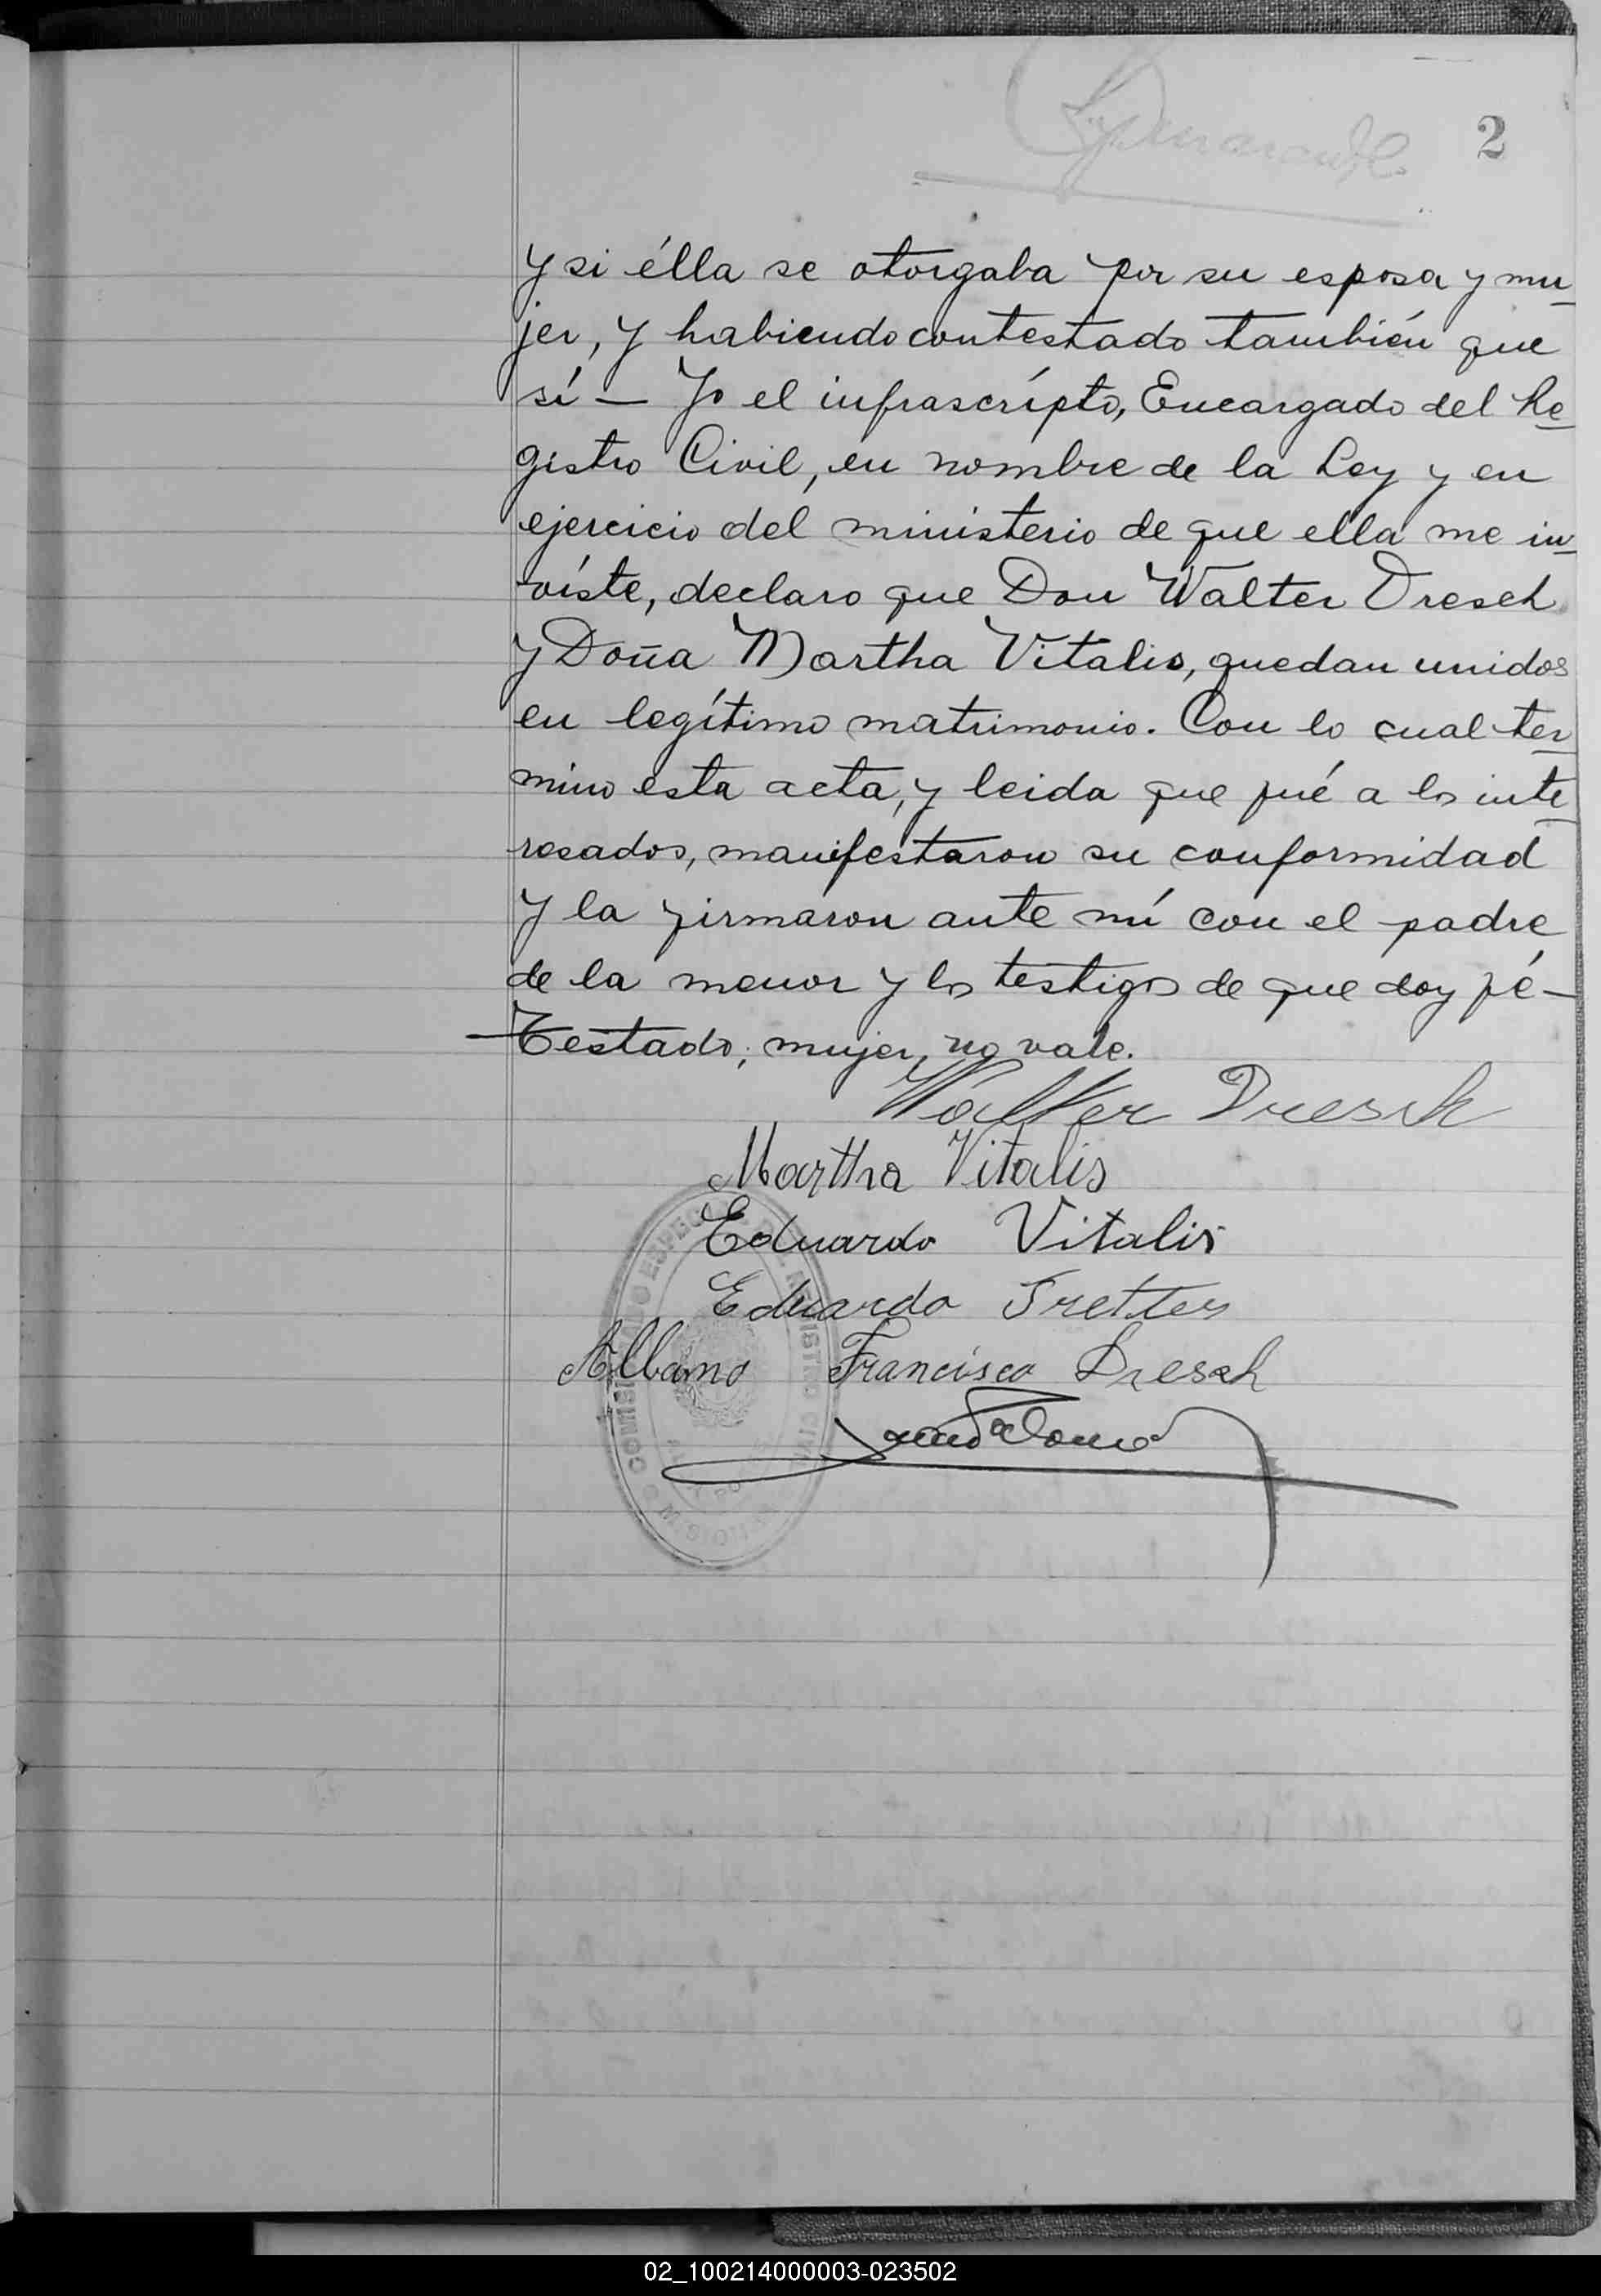 2
y si élla se otorgaba por su esposa y mu
jer, y habiendo contestado también que
sí — Yo el infrascrípto, Encargado del Re
gistro Civil, en nombre de la Ley y en
ejercicio del ministerio de que ella me in
viste, declaro que Don Walter Dresch
y Doña Martha Vitalis, quedan unidos
en legítimo matrimonio. Con lo cual ter
mino esta acta, y leida que fué a los inte
resados, manifestaron su conformidad
y la firmaron ante mí con el padre
de la menor y los testigos de que doy fé —
Testado; mujer, no vale.
Walter Dresch
Martha Vitalis
Eduardo Vitalis
Eduardo Tretter
Albano Francisco Dresch
02_100214000003-023502